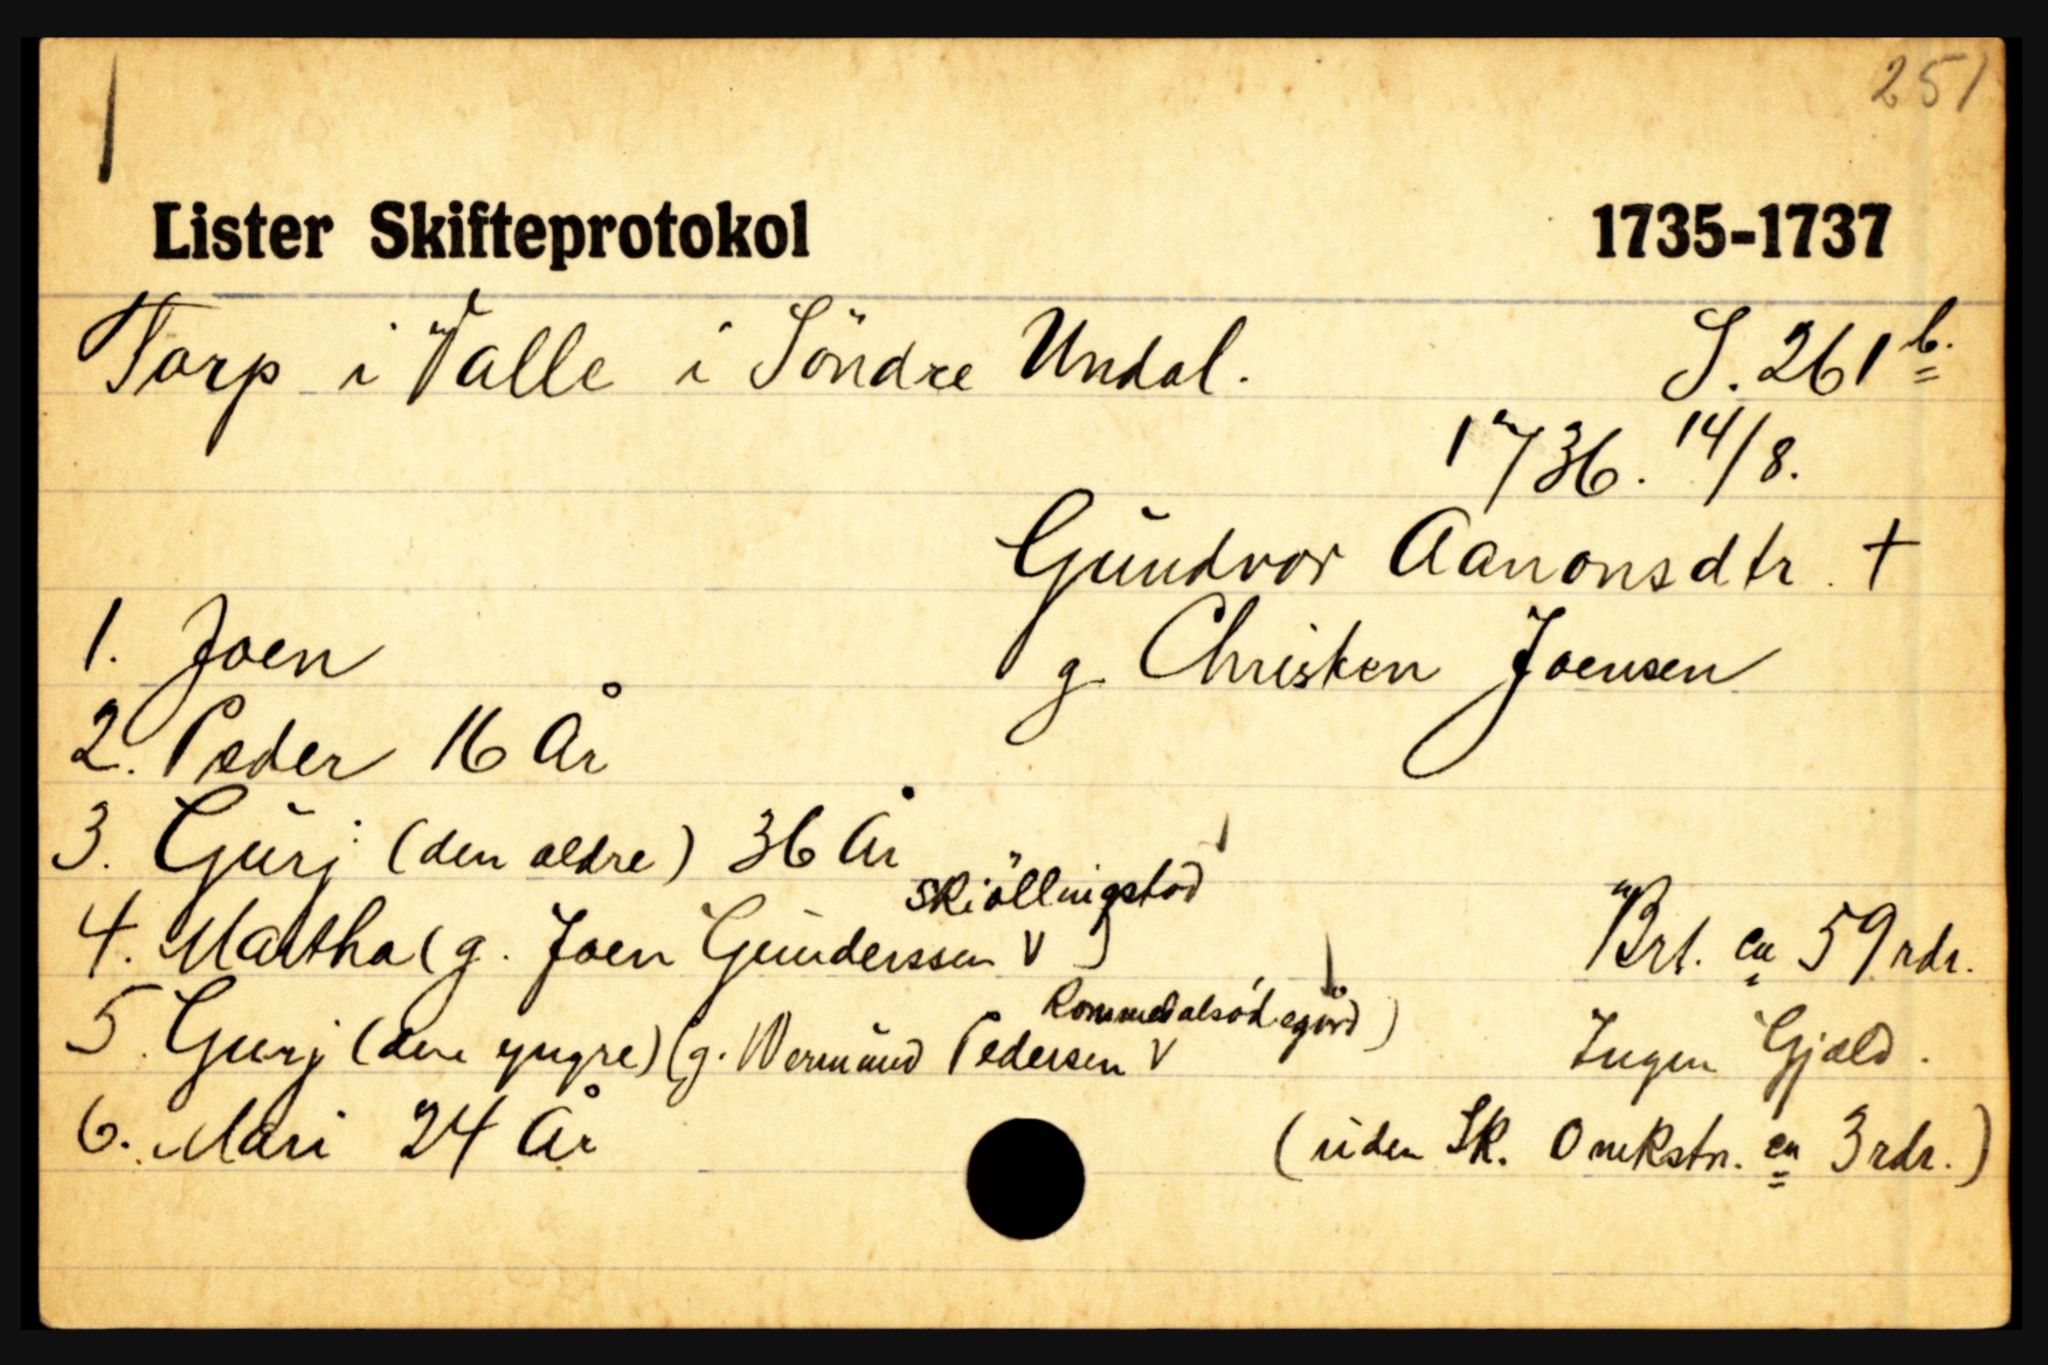 251
Lister Skifteprotokol 1735-1737
Torp i Valle i Söndre Undal. S. 261 b.
1736. 14/8.
Gundvor Aanonsdtr. †
1. Joen g. Christen Joensen
2. Peder 16 År
3. Gurj (den ældre) 36 År
Skiöllingstad
4. Martha (g. Joen Gunderssen V) Brt. ca 59 rdr.
Rommedalsødegård)
5. Gurj (den yngre) (g. Wermund Pedersen V Ingen Gjæld.
6. Mari 24 År (uden Sk. Omkstn. ca 3 rdr.)